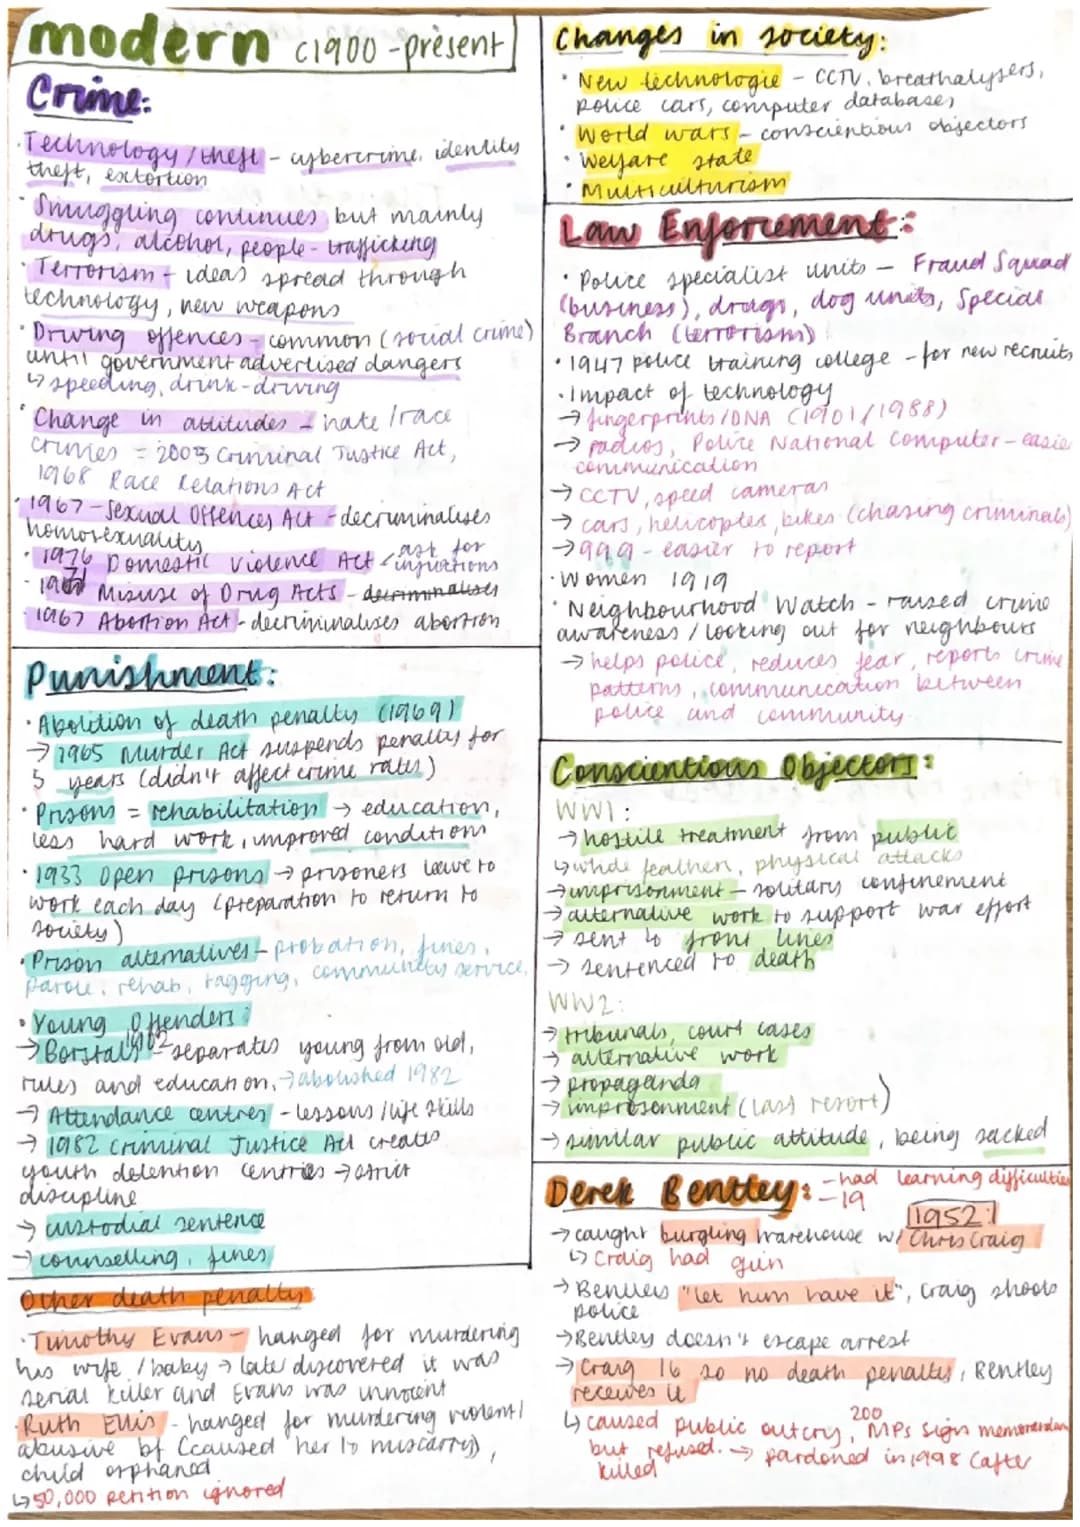 modern c1900-present
Crime:
· Technology/theft - cybercrime, identity
theft, extortion
· Smuggling continues but mainly
drugs, alcohol, people-trafficking
· Terrorism - ideas spread through
technology, new weapons
· Driving offences - common (social crime)
until government advertised dangers
↳ speeding, drink-driving
· Change in attitudes - hate/race
crimes = 2005 Criminal Justice Act,
1968 Race Relations Act
· 1967 - Sexual Offences Act - decriminalises
homosexuality
· 1976 Domestic Violence Act - ask for
injuntions
· 1971 Misuse of Drug Acts - decriminalises
· 1967 Abortion Act - decriminalises abortion
Punishment:
· Abolition of death penalty (1969)
→ 1965 Murder Act suspends penalty for
5 years (didn't affect crime rates)
· Prisons = rehabilitation → education,
less hard work, improved conditions
· 1933 Open prisons → prisoners leave to
work each day (preparation to return to
society)
· Prison alternatives - probation, fines,
parole, rehab, tagging, community service,
· Young Offenders:
→ Borstals 1902 - separates young from old,
rules and education, → abolished 1982
→ Attendance centres - lessons/life skills
→ 1982 Criminal Justice Act creates
youth detention centries → strict
discipline
→ custodial sentence
→ counselling, fines
Other death penalty
· Timothy Evans - hanged for murdering
his wife/baby → late discovered it was
serial killer and Evans was innocent
· Ruth Ellis - hanged for murdering violent/
abusive bf (caused her to miscarry),
child orphaned
↳ 50,000 petition ignored
Changes in society:
· New technologie - CCTV, breathalysers,
police cars, computer databases
· World wars - conscientious objectors
· Welfare state
· Multiculturism
Law Enforcement:
· Police specialist units - Fraud Squad
(business), drugs, dog units, Special
Branch (terrorism)
· 1947 police training college - for new recruits
· Impact of technology
→ fingerprints/DNA (1901/1988)
→ radios, Police National Computer - easie
communication
→ CCTV, speed cameras
→ cars, helicopter, bikes (chasing criminals)
→ 999 - easier to report
· Women 1919
· Neighbourhood Watch - raised crime
awareness/looking out for neighbours
→ helps police, reduces fear, reports crime
patterns, communication between
police and community
Conscientious Objectors:
WW1:
→ hostile treatment from public
↳ white feather, physical attacks
→ imprisonment - solitary confinement
→ alternative work to support war effort
→ sent to front lines
→ sentenced to death
WW2:
→ tribunals, court cases
→ alternative work
→ propaganda
→ imprisonment (last resort)
→ similar public attitude, being sacked
Derek Bentley: - had learning difficulties
- 19
1952:
→ caught burgling warehouse w/ Chris Craig
↳ Craig had gun
→ Bentley "let him have it", Craig shoots
police
→ Bentley doesn't escape arrest
→ Craig 16 so no death penalty, Bentley
receives it
↳ caused public outcry, 200 MPs sign memorandum
but refused. → pardoned in 1998 (after
killed